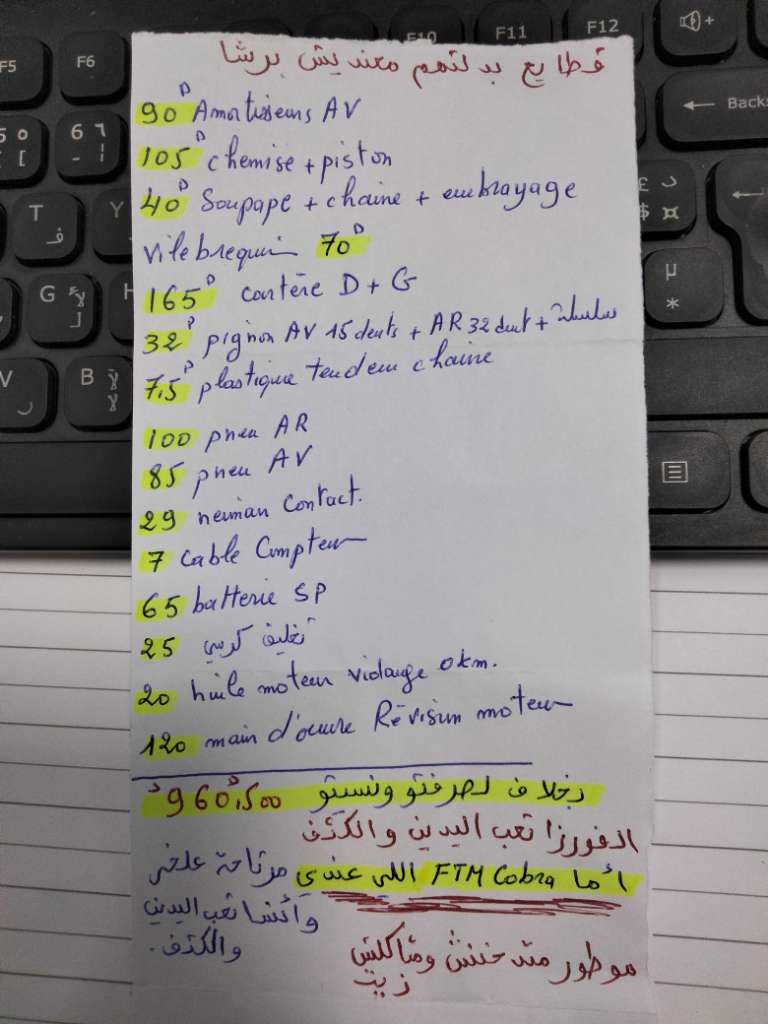 قطايع بدلتهم معنديش برشا
90ᴰ Amortisseurs AV
105ᴰ chemise + piston
40ᴰ Soupape + chaine + embrayage
vilebrequin 70ᴰ
165ᴰ cartère D + G
32ᴰ pignon AV 15 dents + AR 32 dent + سلسلة
7,5ᴰ plastique tendeur chaine
100 pneu AR
85 pneu AV
29 neiman Contact.
7 Cable Compteur
65 batterie SP
25 تغليف كرسي
20 huile moteur vidange 0km.
120 main d'œuvre Révision moteur
بخلاف لصرفتو ونسيتو 960ᴰ,500
الفورزا تعب اليدين والكتف
أما FTM Cobra اللي عندي مرتاحة علخر
وأنسا تعب اليدين
والكتف.
موطور متدخنش ومتاكلش
زيت
F5
F6
F10
F11
F12
Back
T
Y
G
H
V
B